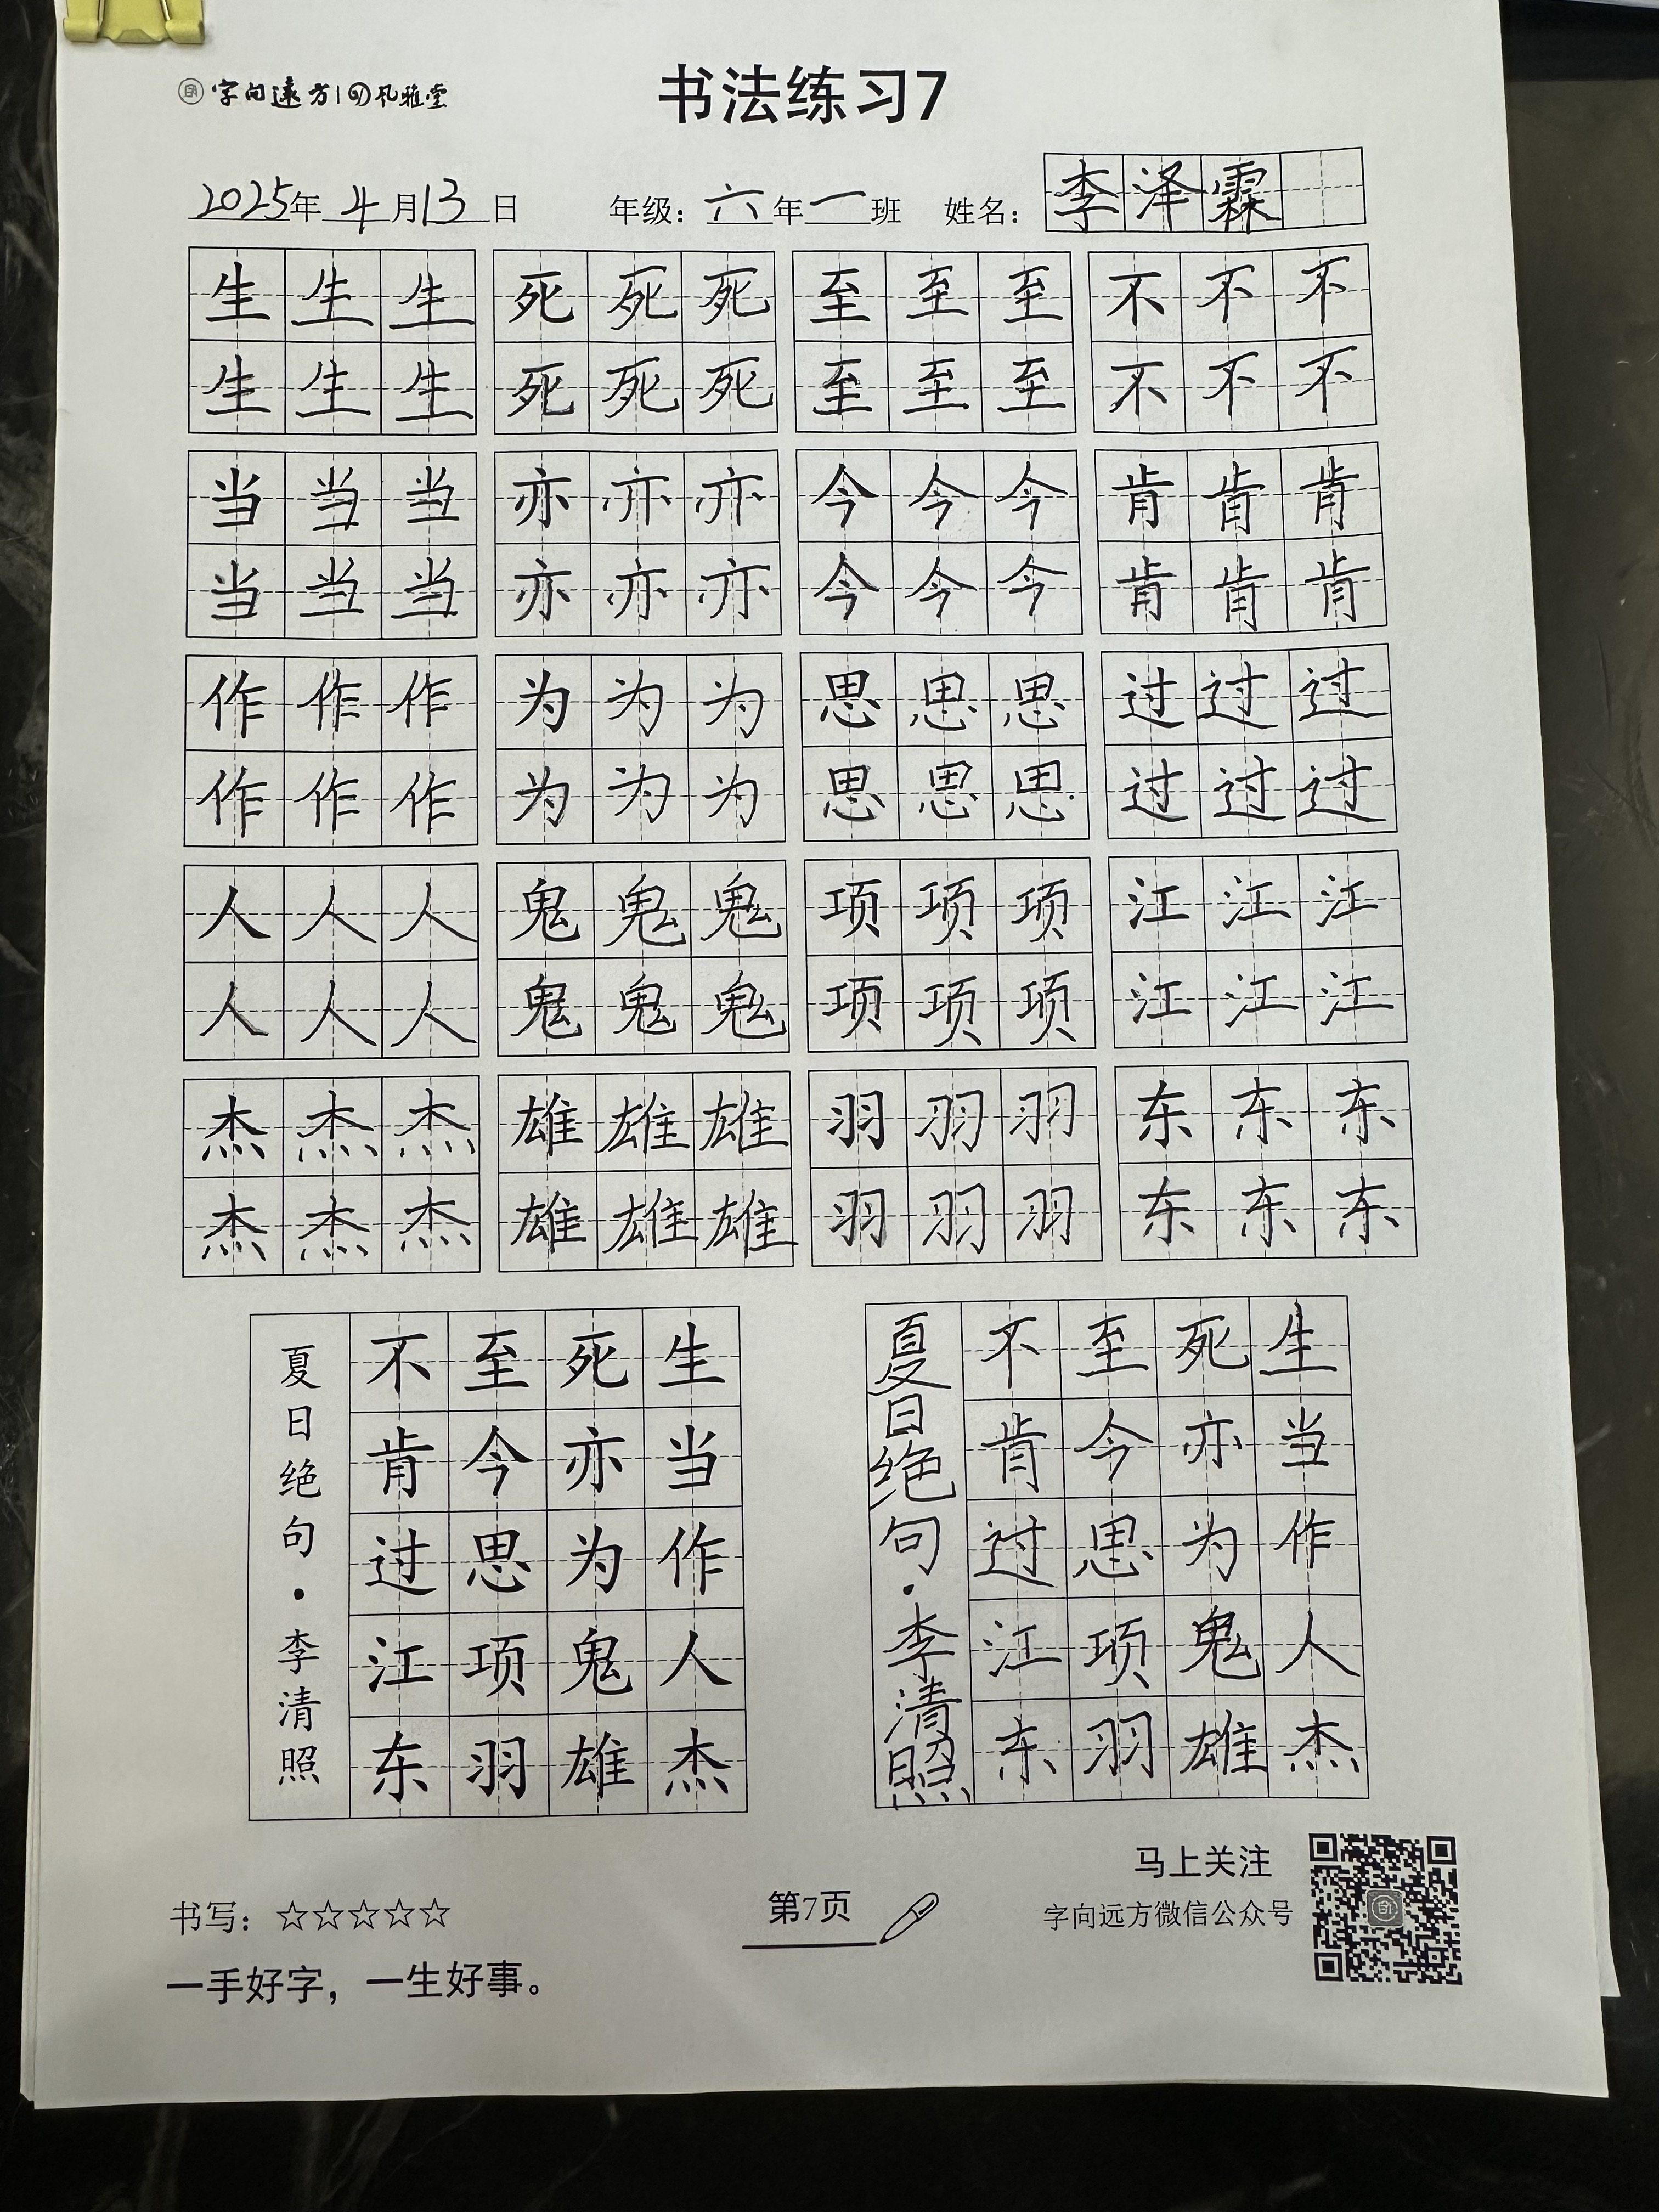 字向远方 凡雅堂
书法练习7
2025年 4月13日 年级：六年一班 姓名：李泽霖
生生生 死死死 至至至 不不不
生生生 死死死 至至至 不不不
当当当 亦亦亦 今今今 肯肯肯
当当当 亦亦亦 今今今 肯肯肯
作作作 为为为 思思思 过过过
作作作 为为为 思思思 过过过
人人人 鬼鬼鬼 项项项 江江江
人人人 鬼鬼鬼 项项项 江江江
杰杰杰 雄雄雄 羽羽羽 东东东
杰杰杰 雄雄雄 羽羽羽 东东东
生当作人杰
死亦为鬼雄
至今思项羽
不肯过江东
夏日绝句·李清照
生当作人杰
死亦为鬼雄
至今思项羽
不肯过江东
夏日绝句·李清照
书写：☆☆☆☆☆
一手好字，一生好事。
第7页
马上关注
字向远方微信公众号